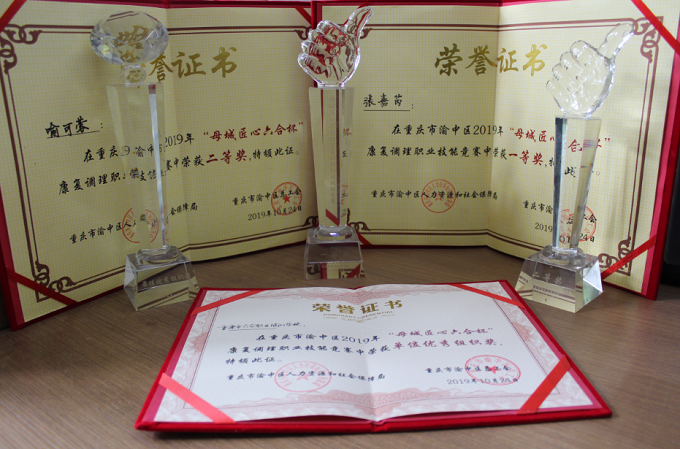 荣誉证书
喻可蓉：
在重庆市渝中区2019年“母城匠心六合杯”
康复调理职业技能竞赛中荣获二等奖，特颁此证。
重庆市渝中区总工会
2019年10月24日
荣誉证书
张嘉芮：
在重庆市渝中区2019年“母城匠心六合杯”
康复调理职业技能竞赛中荣获一等奖，特颁此证。
重庆市渝中区人力资源和社会保障局
荣誉证书
在重庆市渝中区2019年“母城匠心六合杯”
康复调理职业技能竞赛中荣获单位优秀组织奖，
特颁此证。
重庆市渝中区人力资源和社会保障局
重庆市渝中区总工会
2019年10月24日